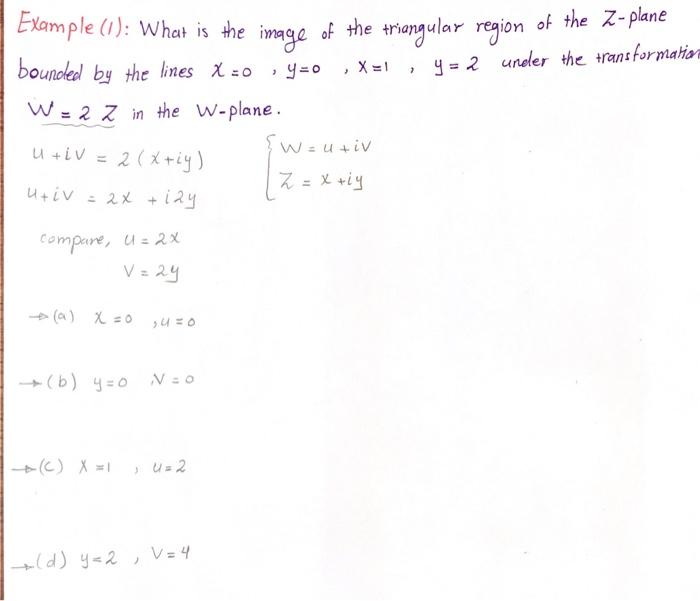 Example (1): What is the image of the triangular region of the Z-plane
bounded by the lines x=0 , y=0 , x=1 , y=2 under the transformation
W = 2 Z in the W-plane.
u+iv = 2(x+iy)
{ W = u+iv
Z = x+iy
u+iv = 2x + i2y
compare, u = 2x
V = 2y
→(a) x=0 , u=0
→(b) y=0 V=0
→(c) x=1 , u=2
→(d) y=2 , V=4